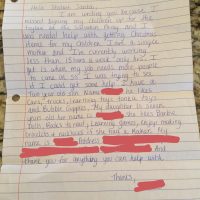 Hello Student Santa,
I am writing you because I
missed signing my children up for the
toy/one at the salvation Army. And
could really help with getting Christmas
items for my children. I am a single
mother and I'm currently working
less than 15hours a week, only time I
get is when my job needs more people
to come in. So I was trying to see
if I could get some help. I have a
Two year old son. Name he likes
Cars, trucks, learning toys, tonka toys
and Bubble Guppies. My daughter is seven
years old her name is She likes Barbie
Dolls, Books to read, Learning games, enjoy making
bracelets & necklaces is she has a Maker. My
name is Address
And
thank you for anything you can help with.
Thanks,